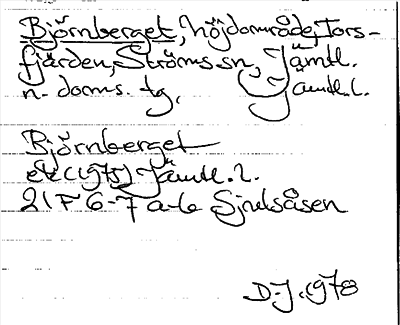 Björnberget, höjdområde, Tors-
fjärden, Ströms sn, Jämtl.
n. doms. tg, Jämtl. l.
Björnberget
ek (1975) Jämtl. l.
21F 6-7 a-b Sjulsåsen
D-J. 1978